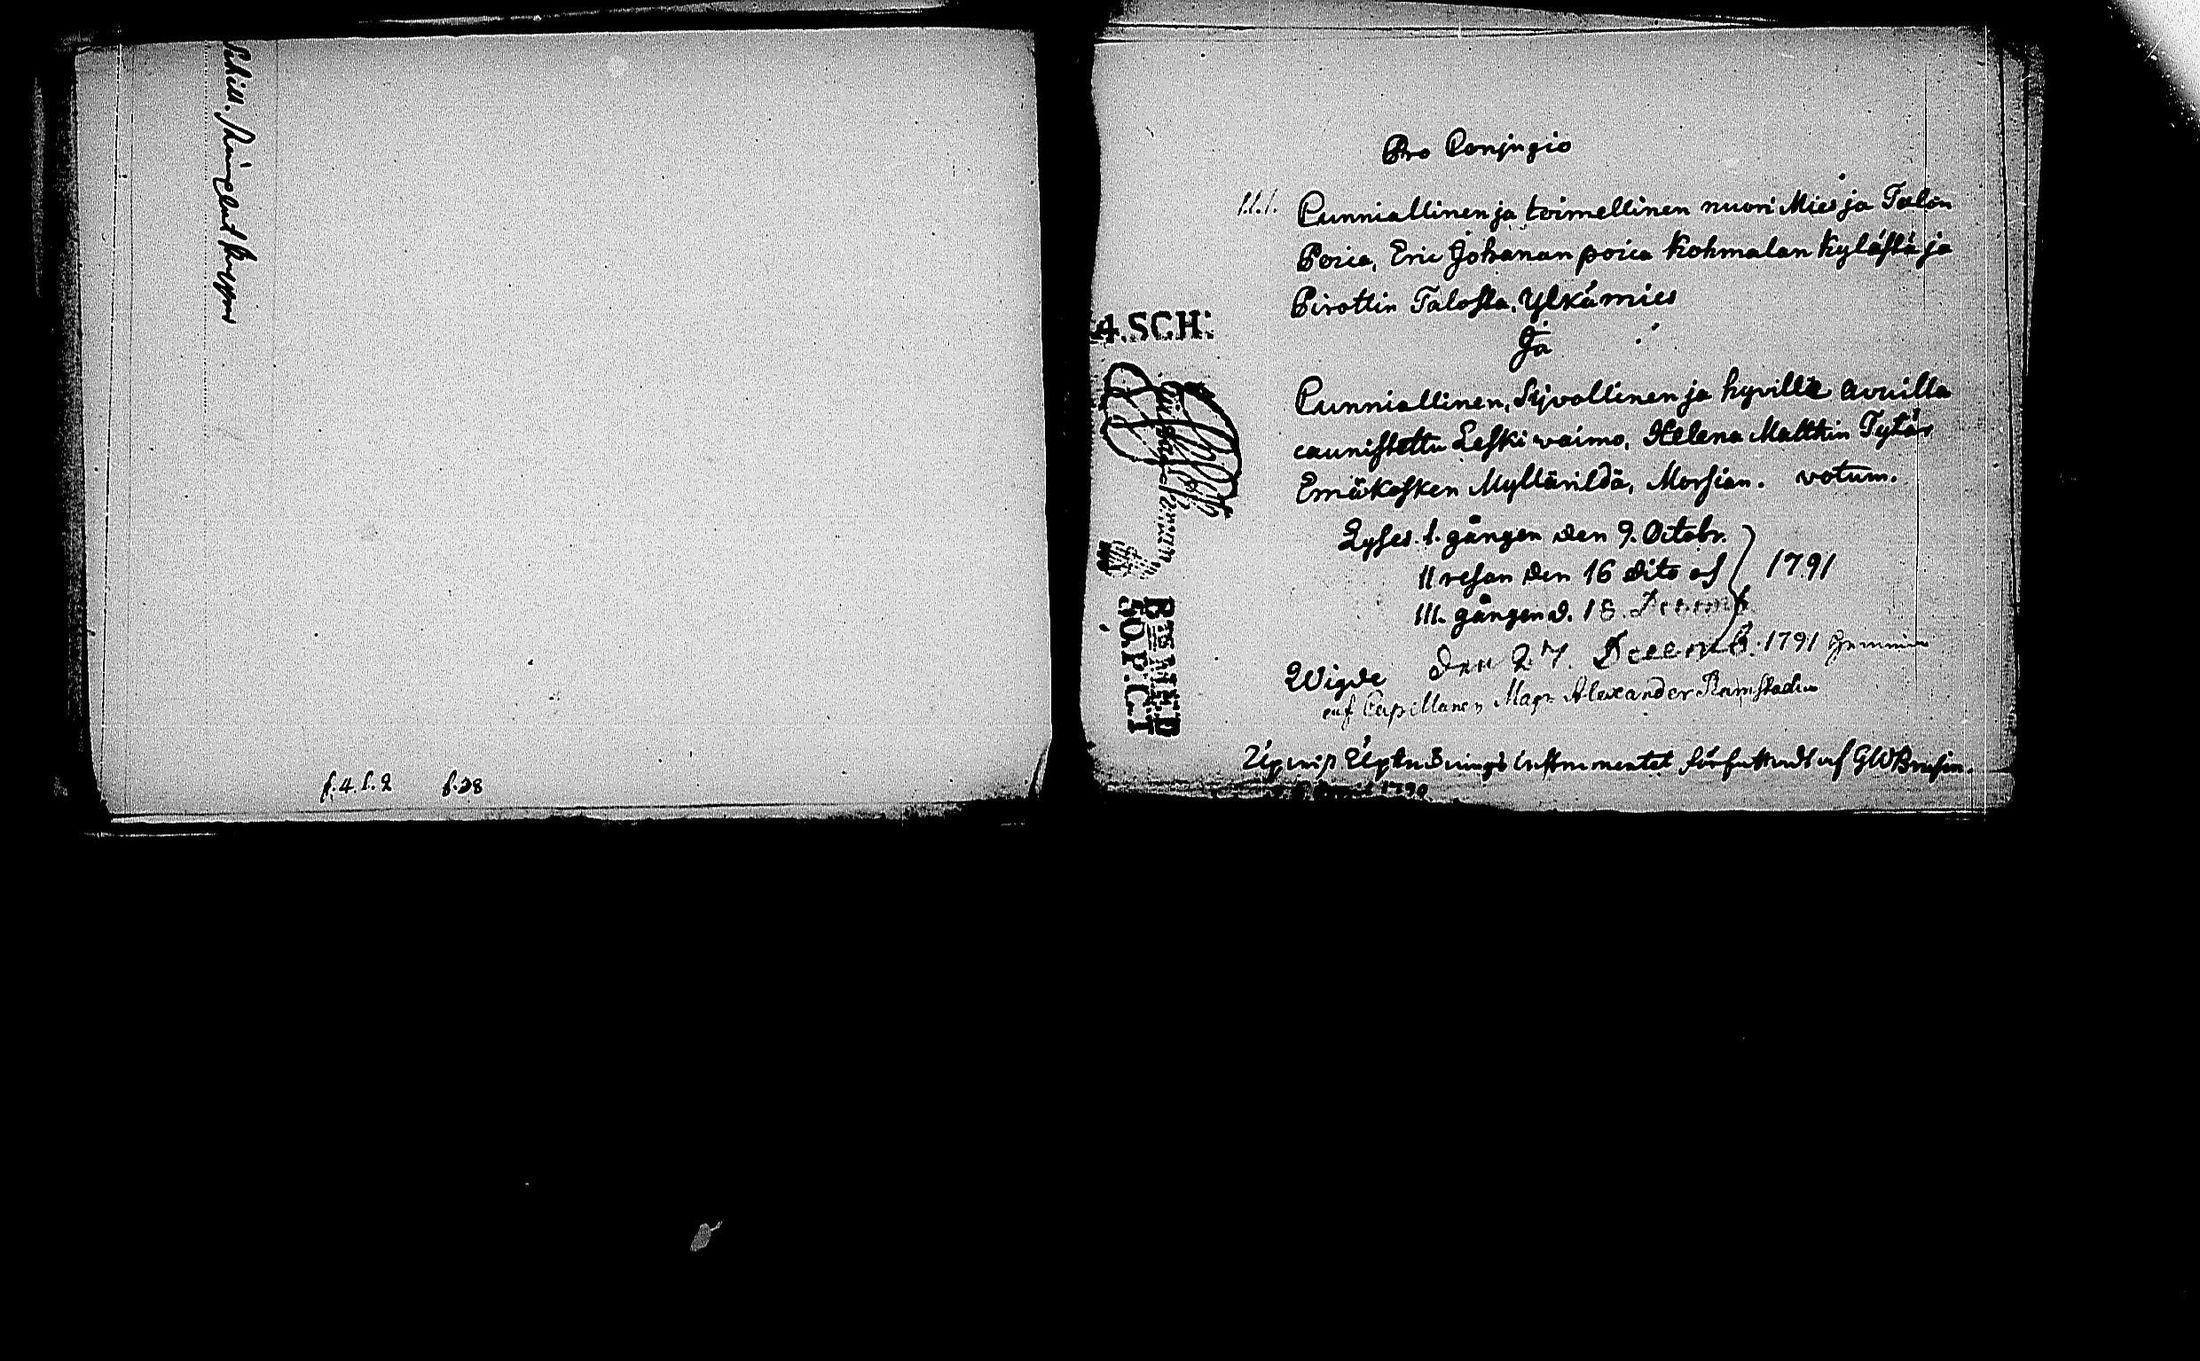 f. 4. f. 2 f. 28
Pro Conjugio
1.1.1. Cunniallinen ja toimellinen nuori Mies ja Talon
Poica, Eric Johanan poica Kohmalan kylästä ja
Pirottin Talosta. Ylkämies
Ja
Cunniallinen, Sijvollinen ja hyvillä avuilla
caunistettu Leski waimo, Helena Matthin Tytär
Emäkosken Myllärildä, Morsian. votum.
Lyses 1. gången den 9. Octobr.
II resan den 16 dito och 1791
III. gången d. 18. Decemb
Wigde den 27. Decemb. 1791 hemma
af Capellanen Mag: Alexander Ramstadius
instrumentet författadt af GW Brusin.
4. SCH:
50. P. CT